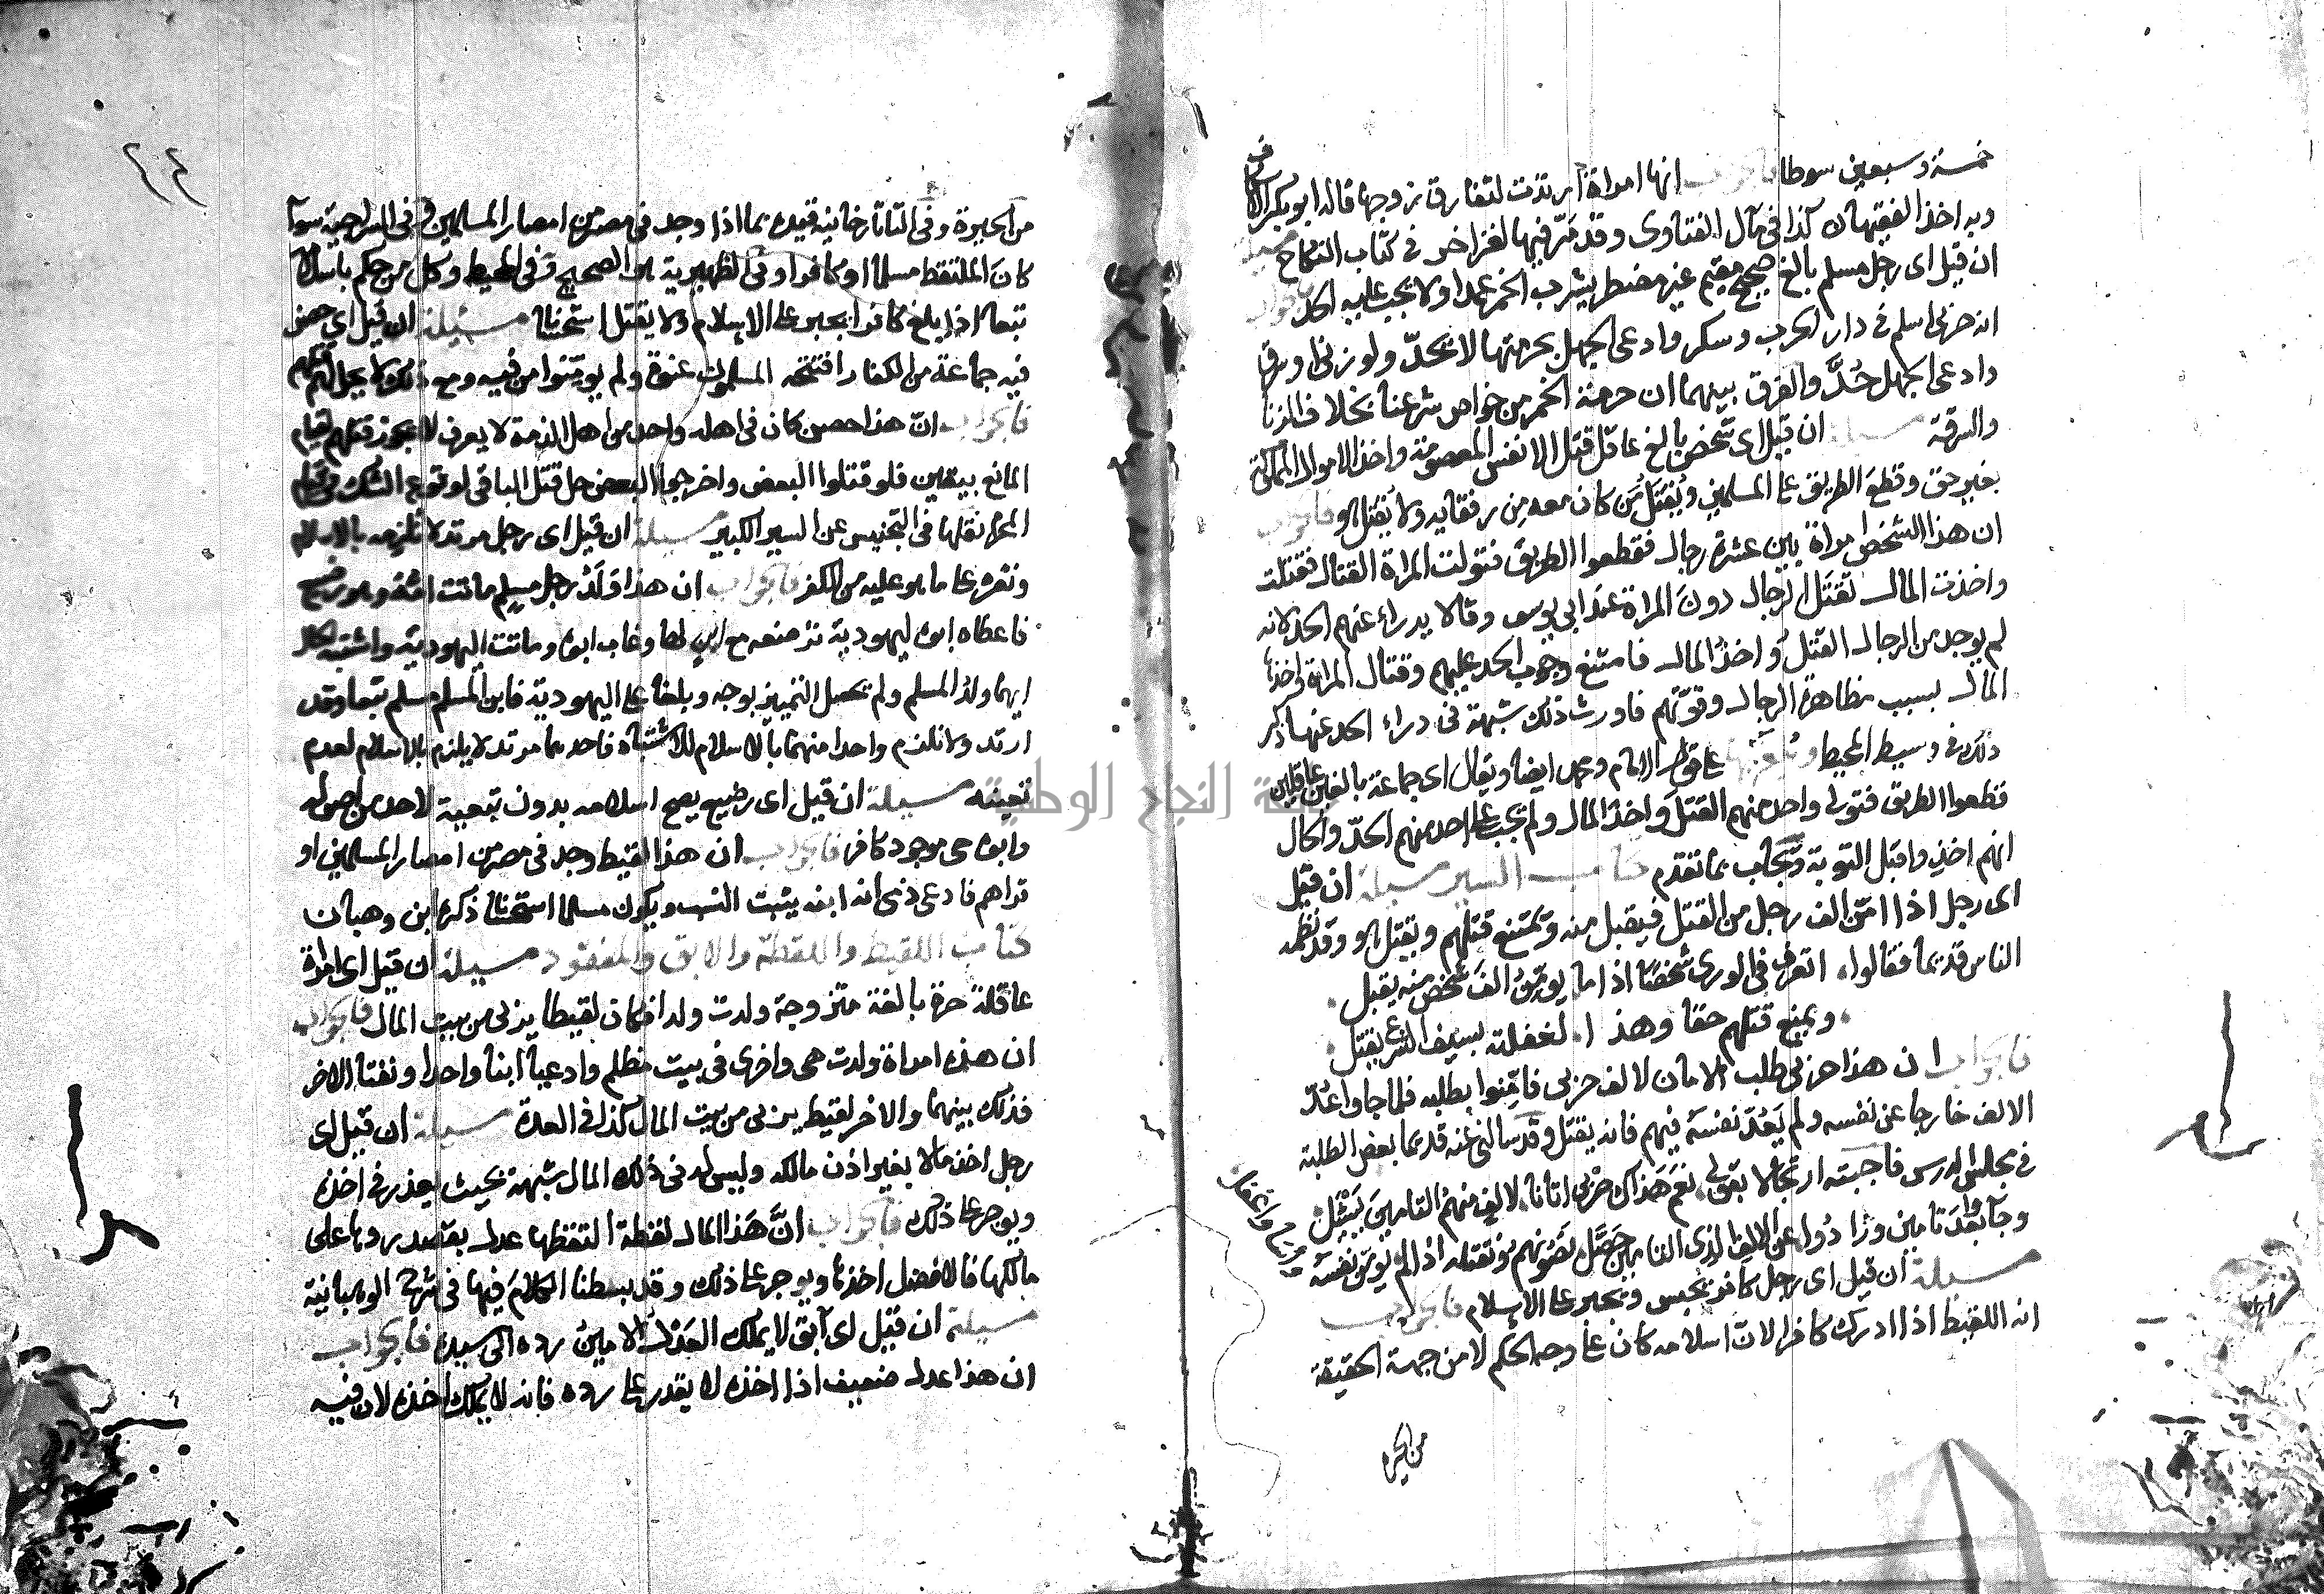 خمسة وسبعين سوطا فالجواب انها امراة ارتدت لتفارق زوجها قاله ابو بكر الاسكاف
وبه اخذ الفقيهان كذا في مآل الفتاوى وقد مر فيها لغز اخر في كتاب النكاح مسيلة
ان قيل اى رجل مسلم بالغ صحيح مقيم غير مضطر يشرب الخمر عمدا ولا يجب عليه الحد فالجواب
انه حربي اسلم في دار الحرب وسكر وادعى الجهل بحرمتها لا يحدّ ولو زنى او سرق
وادعى الجهل حُدَّ والفرق بينهما ان حرمة الخمر من خواص شرعنا بخلاف الزنا
والسرقة مسيلة ان قيل اى شخص بالغ عاقل قتل الانفس المعصومة واخذ الاموال المملوكة
بغير حق وقطع الطريق على المسلمين ويُقتَل من كان معه من رفقايه ولا يُقتَل هو فالجواب
ان هذا الشخص امراة بين عشرة رجال فقطعوا الطريق فتولت المراة القتال فقتلت
واخذت المال تقتل الرجال دون المراة عند ابي يوسف وقالا يدراء عنهم الحد لانه
لم يوجد من الرجال القتل واخذ المال فامتنع وجوب الحد عليهم وقتال المراة واخذها
المال بسبب مظاهرة الرجال وقوتهم فاورث ذلك شبهة في دراء الحد عنها ذكر
ذلك في وسيط المحيط على قول الامام ومحمد ايضا ويقال اى جماعة بالغين عاقلين
قطعوا الطريق فتولى واحد منهم القتل واخذ المال ولم يجب على احد منهم الحدّ والحال
انهم اخذوا قبل التوبة ويجاب بما تقدم كتاب السير مسيلة ان قيل
اى رجل اذا امّن الف رجل من القتل فيقبل منه ويمتنع قتلهم ويقتل هو وقد نظمه
الناس قديما فقالوا اتعرف في الورى شخصا اذا ما يومّن الف شخص منه يقبل
ويمنع قتلهم حقا وهذا لغفلته بسيف الشرع يقتل
فالجواب ان هذا حربي طلب الامان لالف حربي فامّنوا بطلبه فلما جاوا عُدّ
الالف خارجا عن نفسه ولم يَعُدّ نفسَه فيهم فانه يقتل وقد سالني عنه قديما بعض الطلبة
في مجلس الدرس فاجبته ارتجالا بقولي نعم هذاك حربي اتانا لالف منهم التامين يسئل
وجآوا بعد تامين وزادوا عن الالف الذي التامين حصّل نفوتهم ونقتله اذ لم يومّن نفسه
مسيلة ان قيل اى رجل كافر يحبس ويجبر على الاسلام فالجواب
انه اللقيط اذا ادرك كافرا لان اسلامه كان على وجه الحكم لا من جهة الحقيقة
من الحيرة
٢٤
من الحيرة وفي التاتارخانية قيده بما اذا وجد في مصر من امصار المسلمين وفي السراجية سوآ
كان الملتقط مسلما او كافرا وفي الظهيرية هو الصحيح وفي المحيط وكل من حكم باسلامه
تبعا اذا بلغ كافرا يجبر على الاسلام ولا يقتل استحسانا مسيلة ان قيل اي حصن
فيه جماعة من الكفار افتتحه المسلمون عنوة ولم يومّنوا من فيه ومع ذلك لا يحل قتلهم
فالجواب انّ هذا حصن كان في اهله واحد من اهل الذمة لا يعرف لا يجوز قتلهم لقيام
المانع بيقين فلو قتلوا البعض واخرجوا البعض حل قتل الباقي لوقوع الشك في قيام
المحرم نقلها في التجنيس عن السير الكبير مسيلة ان قيل اى رجل مرتد لا نلزمه بالاسلام
ونقره على ما هو عليه من الكفر فالجواب ان هذا وَلَدُ رجل مسلم ماتت امّه وهو رضيع
فاعطاه ابوه ليهودية ترضعه مع ابن لها وغاب ابوه وماتت اليهودية واشتبه الحال
ايهما ولد المسلم ولم يحصل التمييز بوجه وبلغا على اليهودية فابن المسلم مسلم تبعا وقد
ارتد ولا نلزم واحدا منهما بالاسلام للاشتباه فاحدهما مرتد لا يلزم بالاسلام لعدم
تعينه مسيلة ان قيل اى رضيع يصح اسلامه بدون تبعية لاحد من اصوله
وابوه حي موجود كافر فالجواب ان هذا لقيط وجد في مصر من امصار المسلمين او
قراهم فادعى ذمي انه ابنه يثبت النسب ويكون مسلما استحسانا ذكره ابن وهبان
كتاب اللقيط واللقطة والابق والمفقود مسيلة ان قيل اى امراة
عاقلة حرة بالغة متزوجة ولدت ولدا فكان لقيطا يربى من بيت المال فالجواب
ان هذه امراة ولدت هي واخرى في بيت مظلم وادعيا ابنا واحدا ونفتا الاخر
فذلك بينهما والاخر لقيط يربى من بيت المال كذا في العدة مسيلة ان قيل اى
رجل اخذ مالا بغير اذن مالكه وليس له في ذلك المال شبهة بحيث يعذر في اخذه
ويوجر على ذلك فالجواب انّ هذا المال لقطة التقطها عدل بقصد ردها على
مالكها فالافضل اخذها ويوجر على ذلك وقد بسطنا الكلام فيها في شرح الوهبانية
مسيلة ان قيل اى آبق لا يملك العدل الامين رده الى سيده فالجواب
ان هذا عدل ضعيف اذا اخذه لا يقدر على رده فانه لا يملك اخذه لان فيه
جامعة النجاح الوطنية